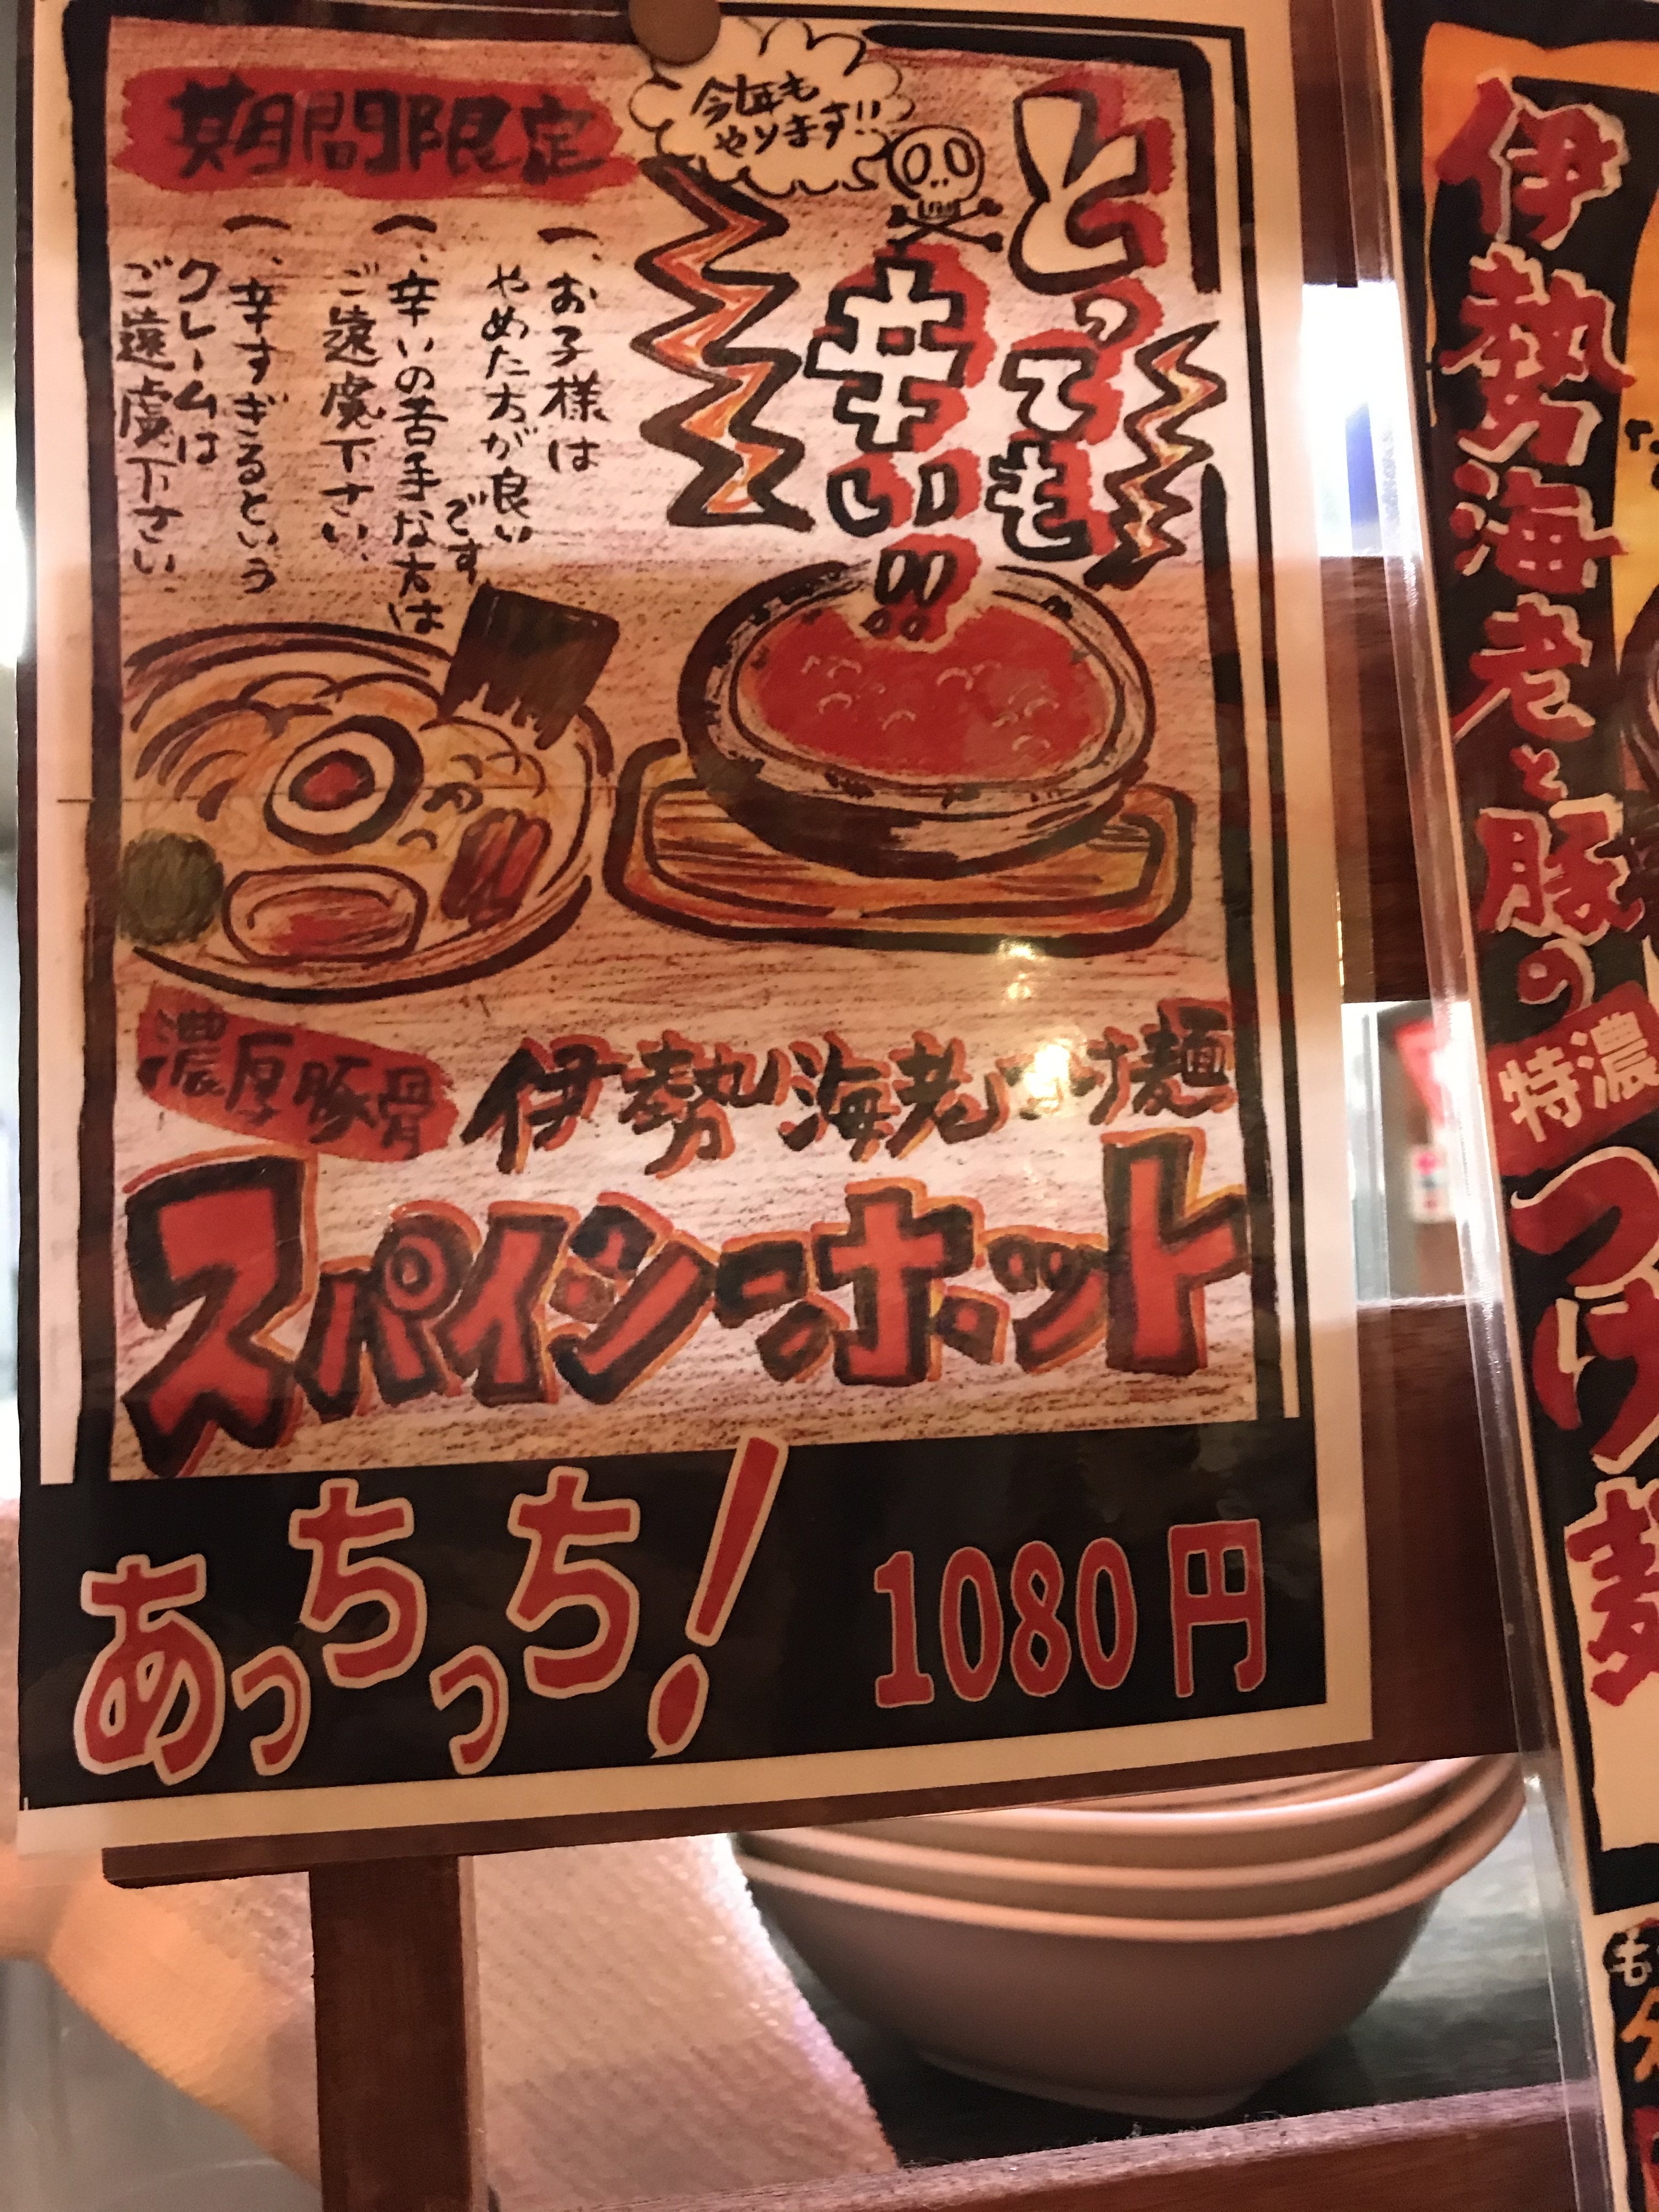 期間限定
今年も
やります!!
とっても
辛い!!
一、お子様は
やめた方が良い
です
一、辛いの苦手な方は
ご遠慮下さい、
一、辛すぎるという
クレームは
ご遠慮下さい
濃厚豚骨
伊勢海老つけ麺
スパイシーホット
あっちっち!
1080円
伊勢海老と豚の
特濃
つけ麺